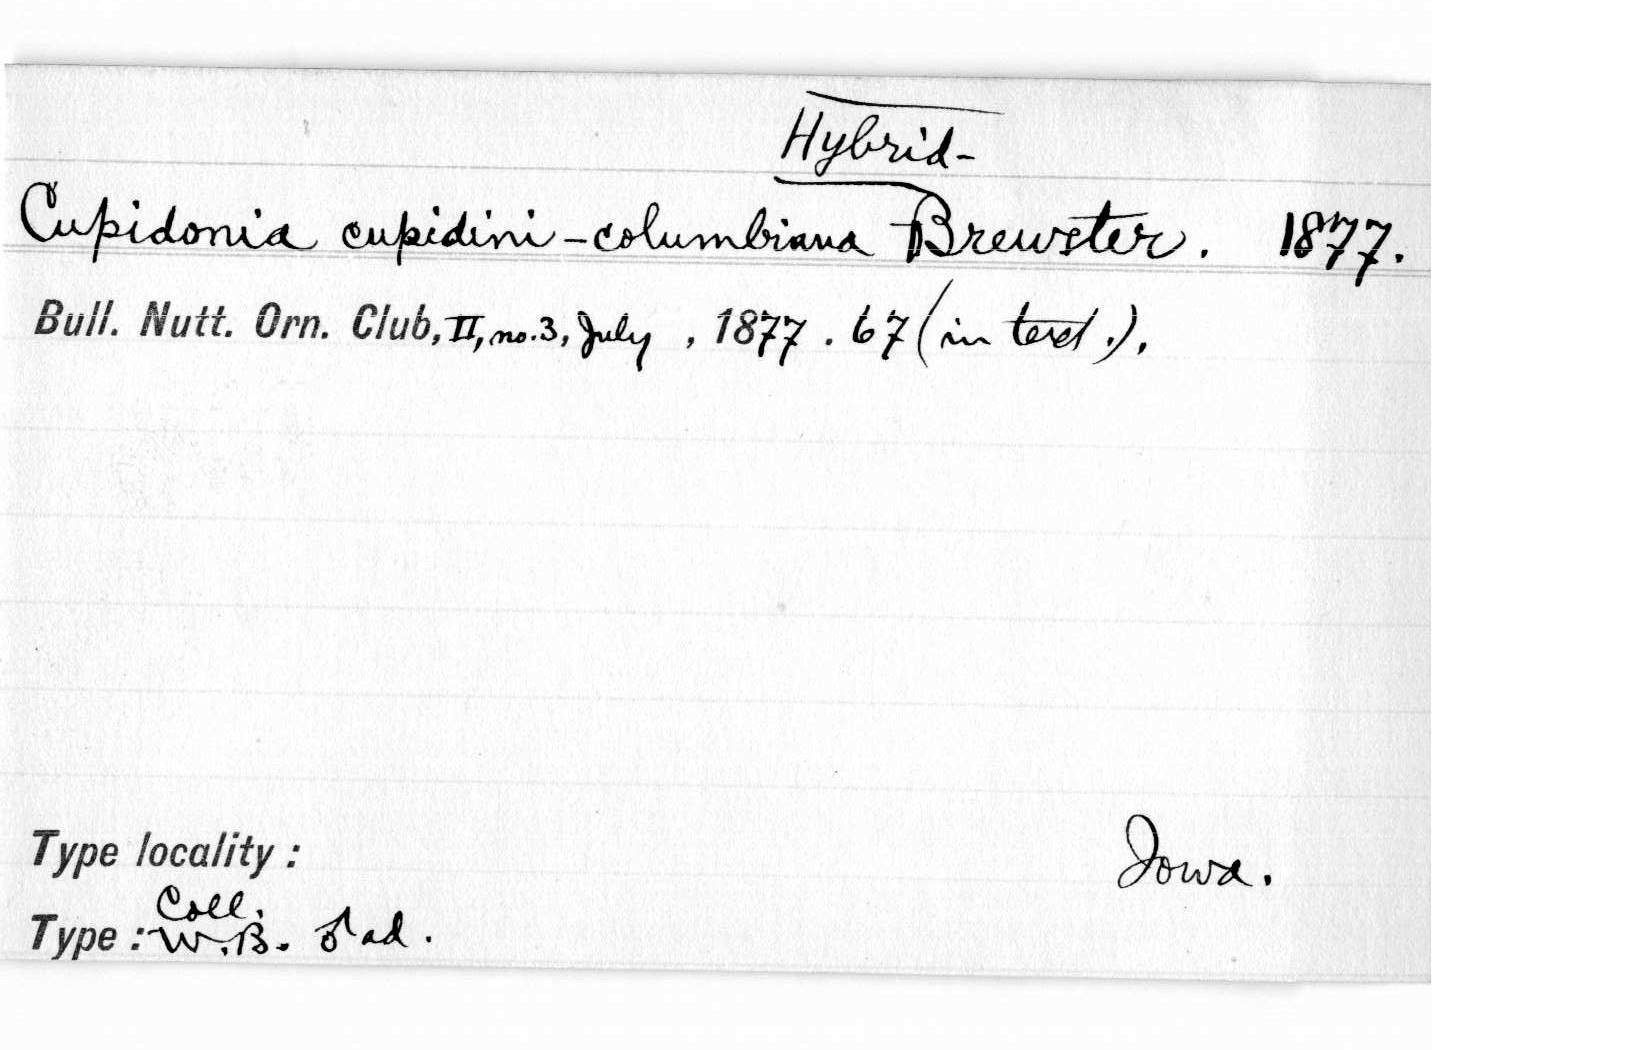 Hybrid-
Cupidonia cupidini-columbiana Brewster. 1877.
Bull. Nutt. Orn. Club, II, no. 3, July , 1877 . 67 (in text.).
Type locality : Iowa.
Coll.
Type : W.B. ♂ ad.